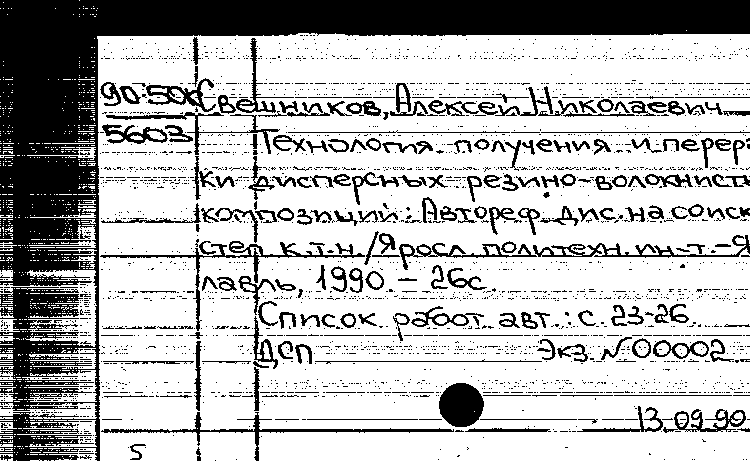 90-50к Свешников, Алексей Николаевич
5603 Технология получения и перера
ки дисперсных резино-волокнисты
композиций: Автореф. дис. на соиск
степ к.т.н./Яросл политехн. ин-т.-Я
лавль, 1990. - 26с.
Список работ авт.: с. 23-26
ДСП Экз. N 00002
13.09.90
5